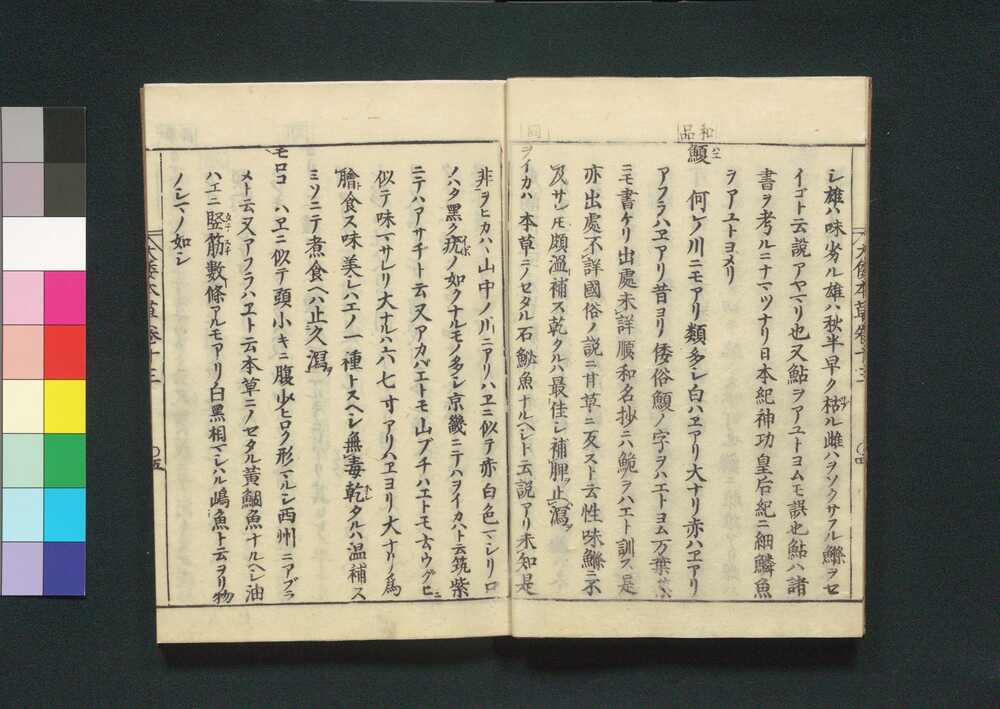 シ雄ハ味劣ル雄ハ秋半早ク枯ル雌ハヲソクサフル鰷ヲセ
イゴト云説アヤマリ也又鮎ヲアユトヨムモ誤也鮎ハ諸
書ヲ考ルニナマツナリ日本紀神功皇后紀ニ細鱗魚
ヲアユトヨメリ
和品
鰷 何ノ川ニモアリ類多シ白ハヱアリ大ナリ赤ハヱアリ
アフラハヱアリ昔ヨリ倭俗ノ字ヲハエトヨム万葉
ニモ書ケリ出處未詳順和名抄ニハ鮠ヲハエト訓ス是
亦出處不詳國俗ノ説ニ甘草ニ反スト云性味鰷ニ不
及サレ𪜈頗温補ス乾タルハ最佳シ補脾止瀉
同
ヲイカハ 本草ニノセタル石鮅魚ナルヘシト云説アリ未知是
非ヲヒカハハ山中ノ川ニアリハヱニ似テ赤白色マシリロ
ノハタ黒ク疣ノ如クナルモノ多シ京畿ニテハヲイカハト云筑紫
ニテハアサチト云又アカバエトモ山ブチハエトモ云ウグヒニ
似テ味マサレリ大ナルハ六七寸アリハヱヨリ大ナリ為
膾食ス味美シハエノ一種トスヘシ無毒乾タルハ温補ス
ミソニテ煮食ヘハ止久瀉
モロコ ハヱニ似テ頭小キニ腹少ヒロク形マルシ西州ニアブラ
メト云又アフラハエト云本草ニノセタル黄鯝魚ナルヘシ油
ハエニ竪筋數條アルモアリ白黒相マシハル嶋魚ト云ヲリ物
ノシマノ如シ
大倭本草卷十三
○四
大倭本草卷十三
○五